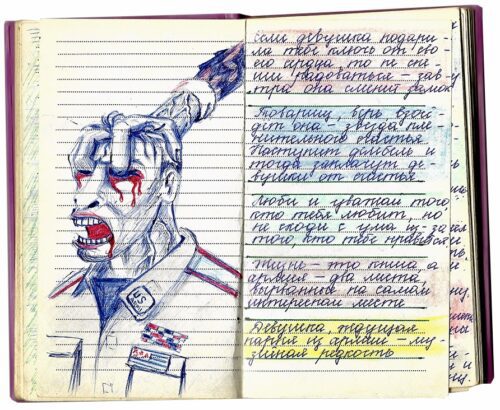 Если девушка подари-
ла тебе ключь от сво-
его сердца, то не спе-
ши радоваться – зав-
тра она сменит замок
Товарищ, верь взой-
дёт она – звезда пле-
нительного счастья
Наступит дембель и
тогда заплачут де-
вушки от счастья
Люби и уважай того
кто тебя любит, но
не сходи с ума из-за
того, кто тебе нравится
Жизнь – это книга, а
армия – два листа
вырванные на самом
интересном месте
Девушка, ждущая
парня из армии – му-
зейная редкость